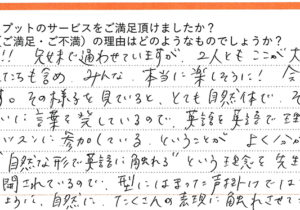 プットのサービスをご満足頂けましたか?
(ご満足・ご不満)の理由はどのようなものでしょうか?
!! 兄妹で通わせていますが、2人ともここが大
たちも含め、みんな、本当に楽しそうに!
す。その様子を見ていると、とても自然体で、そ
いに言葉を発しているので、英語を英語で理
ッスンに参加している、ということが よく分か
"自然な形で英語に触れる"という理念を先生
問されているので、型にはまった声掛けでは
ように、自然に、たくさんの表現に触れさせて